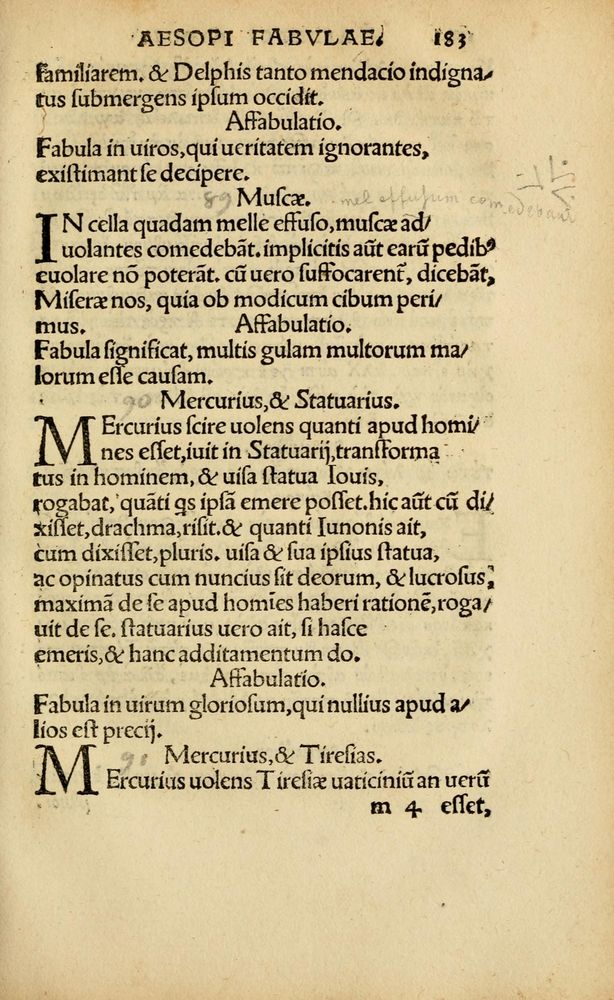 AESOPI FABVLAE. 183
familiarem. & Delphis tanto mendacio indigna/
tus submergens ipsum occidit.
Affabulatio.
Fabula in uiros, qui ueritatem ignorantes,
existimant se decipere.
89 Muscæ. mel effusum comedebant
IN cella quadam melle effuso, muscæ ad/
uolantes comedebāt. implicitis aūt earū pedibꝰ
euolare nō poterāt. cū uero suffocarent᷑, dicebāt,
Miseræ nos, quia ob modicum cibum peri/
mus. Affabulatio.
Fabula significat, multis gulam multorum ma/
lorum esse causam.
90 Mercurius, & Statuarius.
MErcurius scire uolens quanti apud homi/
nes esset, iuit in Statuarij, transforma
tus in hominem, & uisa statua Iouis,
rogabat, quāti qs ipsā emere posset. hic aūt cū di/
xisset, drachma, risit. & quanti Iunonis ait,
cum dixisset, pluris. uisa & sua ipsius statua,
ac opinatus cum nuncius sit deorum, & lucrosus,
maximā de se apud homīes haberi rationē, roga/
uit de se. statuarius uero ait, si hasce
emeris, & hanc additamentum do.
Affabulatio.
Fabula in uirum gloriosum, qui nullius apud a/
lios est precij.
91 Mercurius, & Tiresias.
MErcurius uolens Tiresiæ uaticiniū an uerū
m 4 esset,